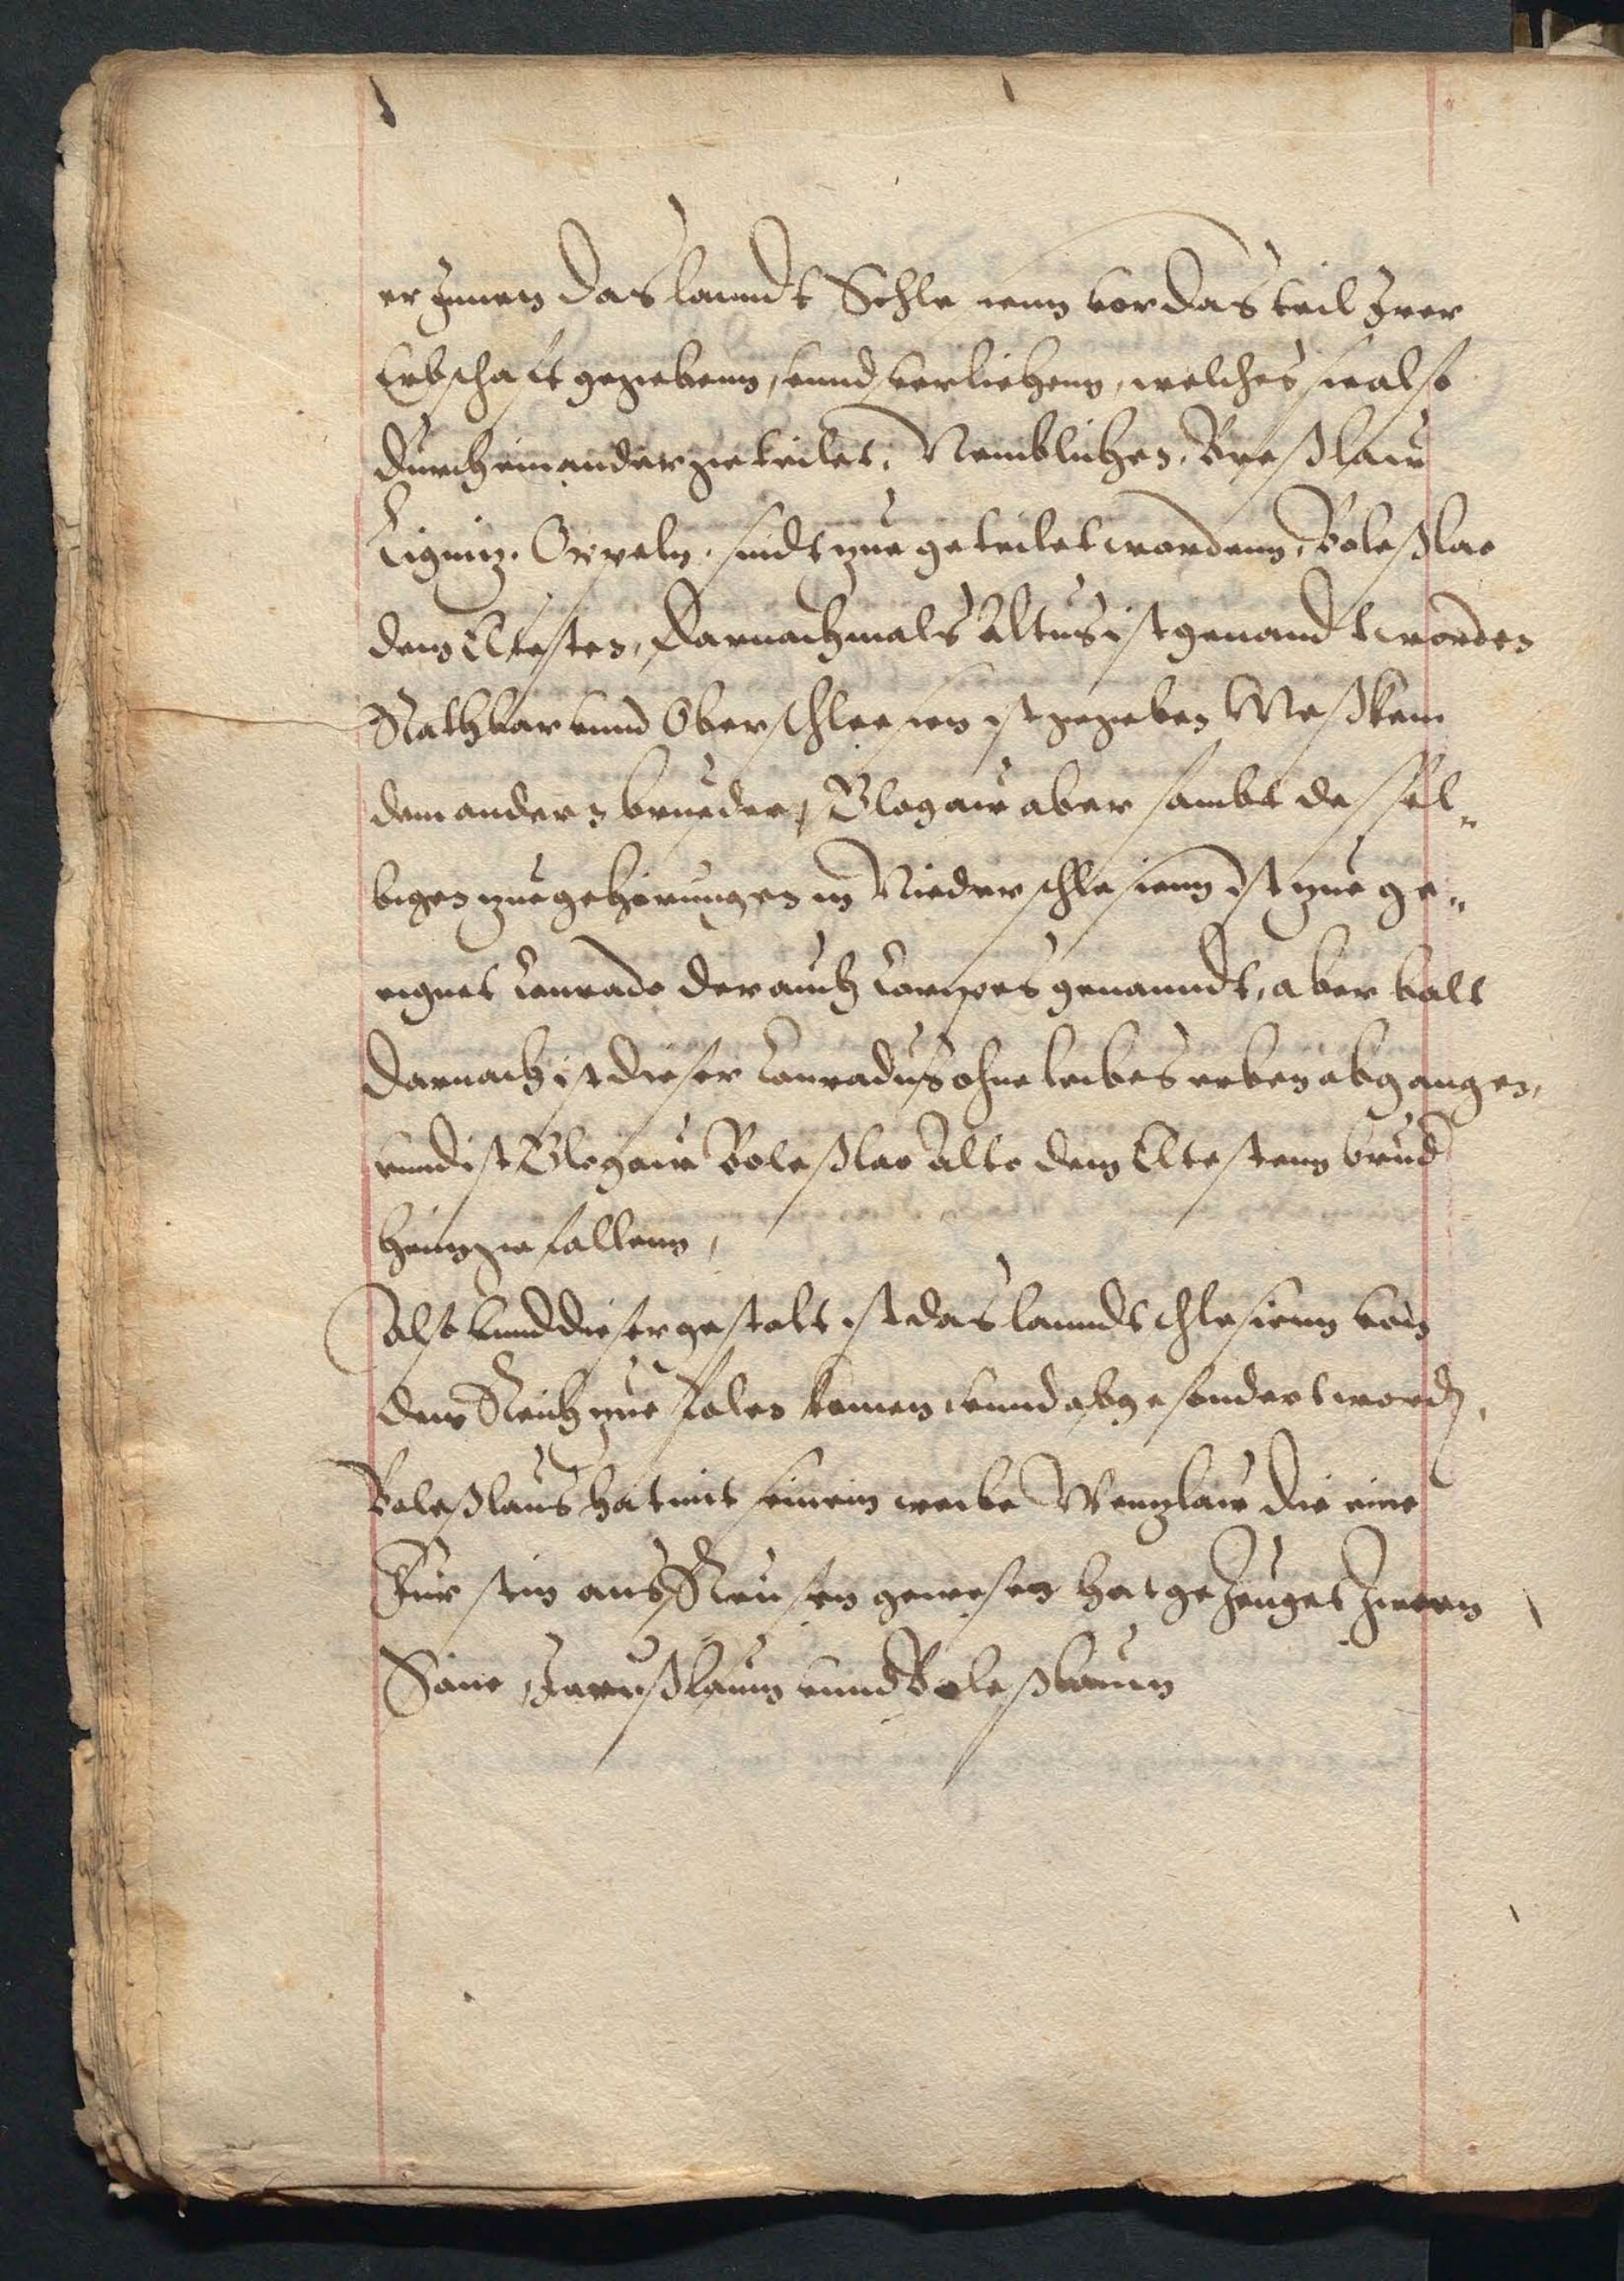 er Jnnen das lanndt Schlesienn vor das teil Jrer
Erbschafft gegebenn, vnnd verliehenn, welches sie also
durch einander geteilet, Nemblichen, Breßlaw
Lignitz. Oppeln. sindt zue geteilet wordenn, Boleßlao
dem Eltesten, Der nachmals Altus ist genandt worden
Rathbar vnnd Oberschlesien ist gegeben Meßkem
dem andern brueder, Glogaw aber sambt desssel„
bigen zuegehörungen in Niederschlesienn ist zue ge„
eignet Conrado der auch Loripes genanndt, aber balt
Darnach ist dieser Conradus ohne leibes erben abgangen,
vnnd ist Glogaw Boleßlao Alto dem Eltestenn brud
heimgefallenn,
Also vnnd dieser gestalt ist das lanndt schlesienn von
dem Reich zue Polen komen vnnd abgesondert word,
Boleßlaus hat mit seinem weibe Wenzlaw die eine
Fürstin aus Reussen gewesen hat gezeuget Zween
Söne, Jaroßlaum vnnd Boleßlaum